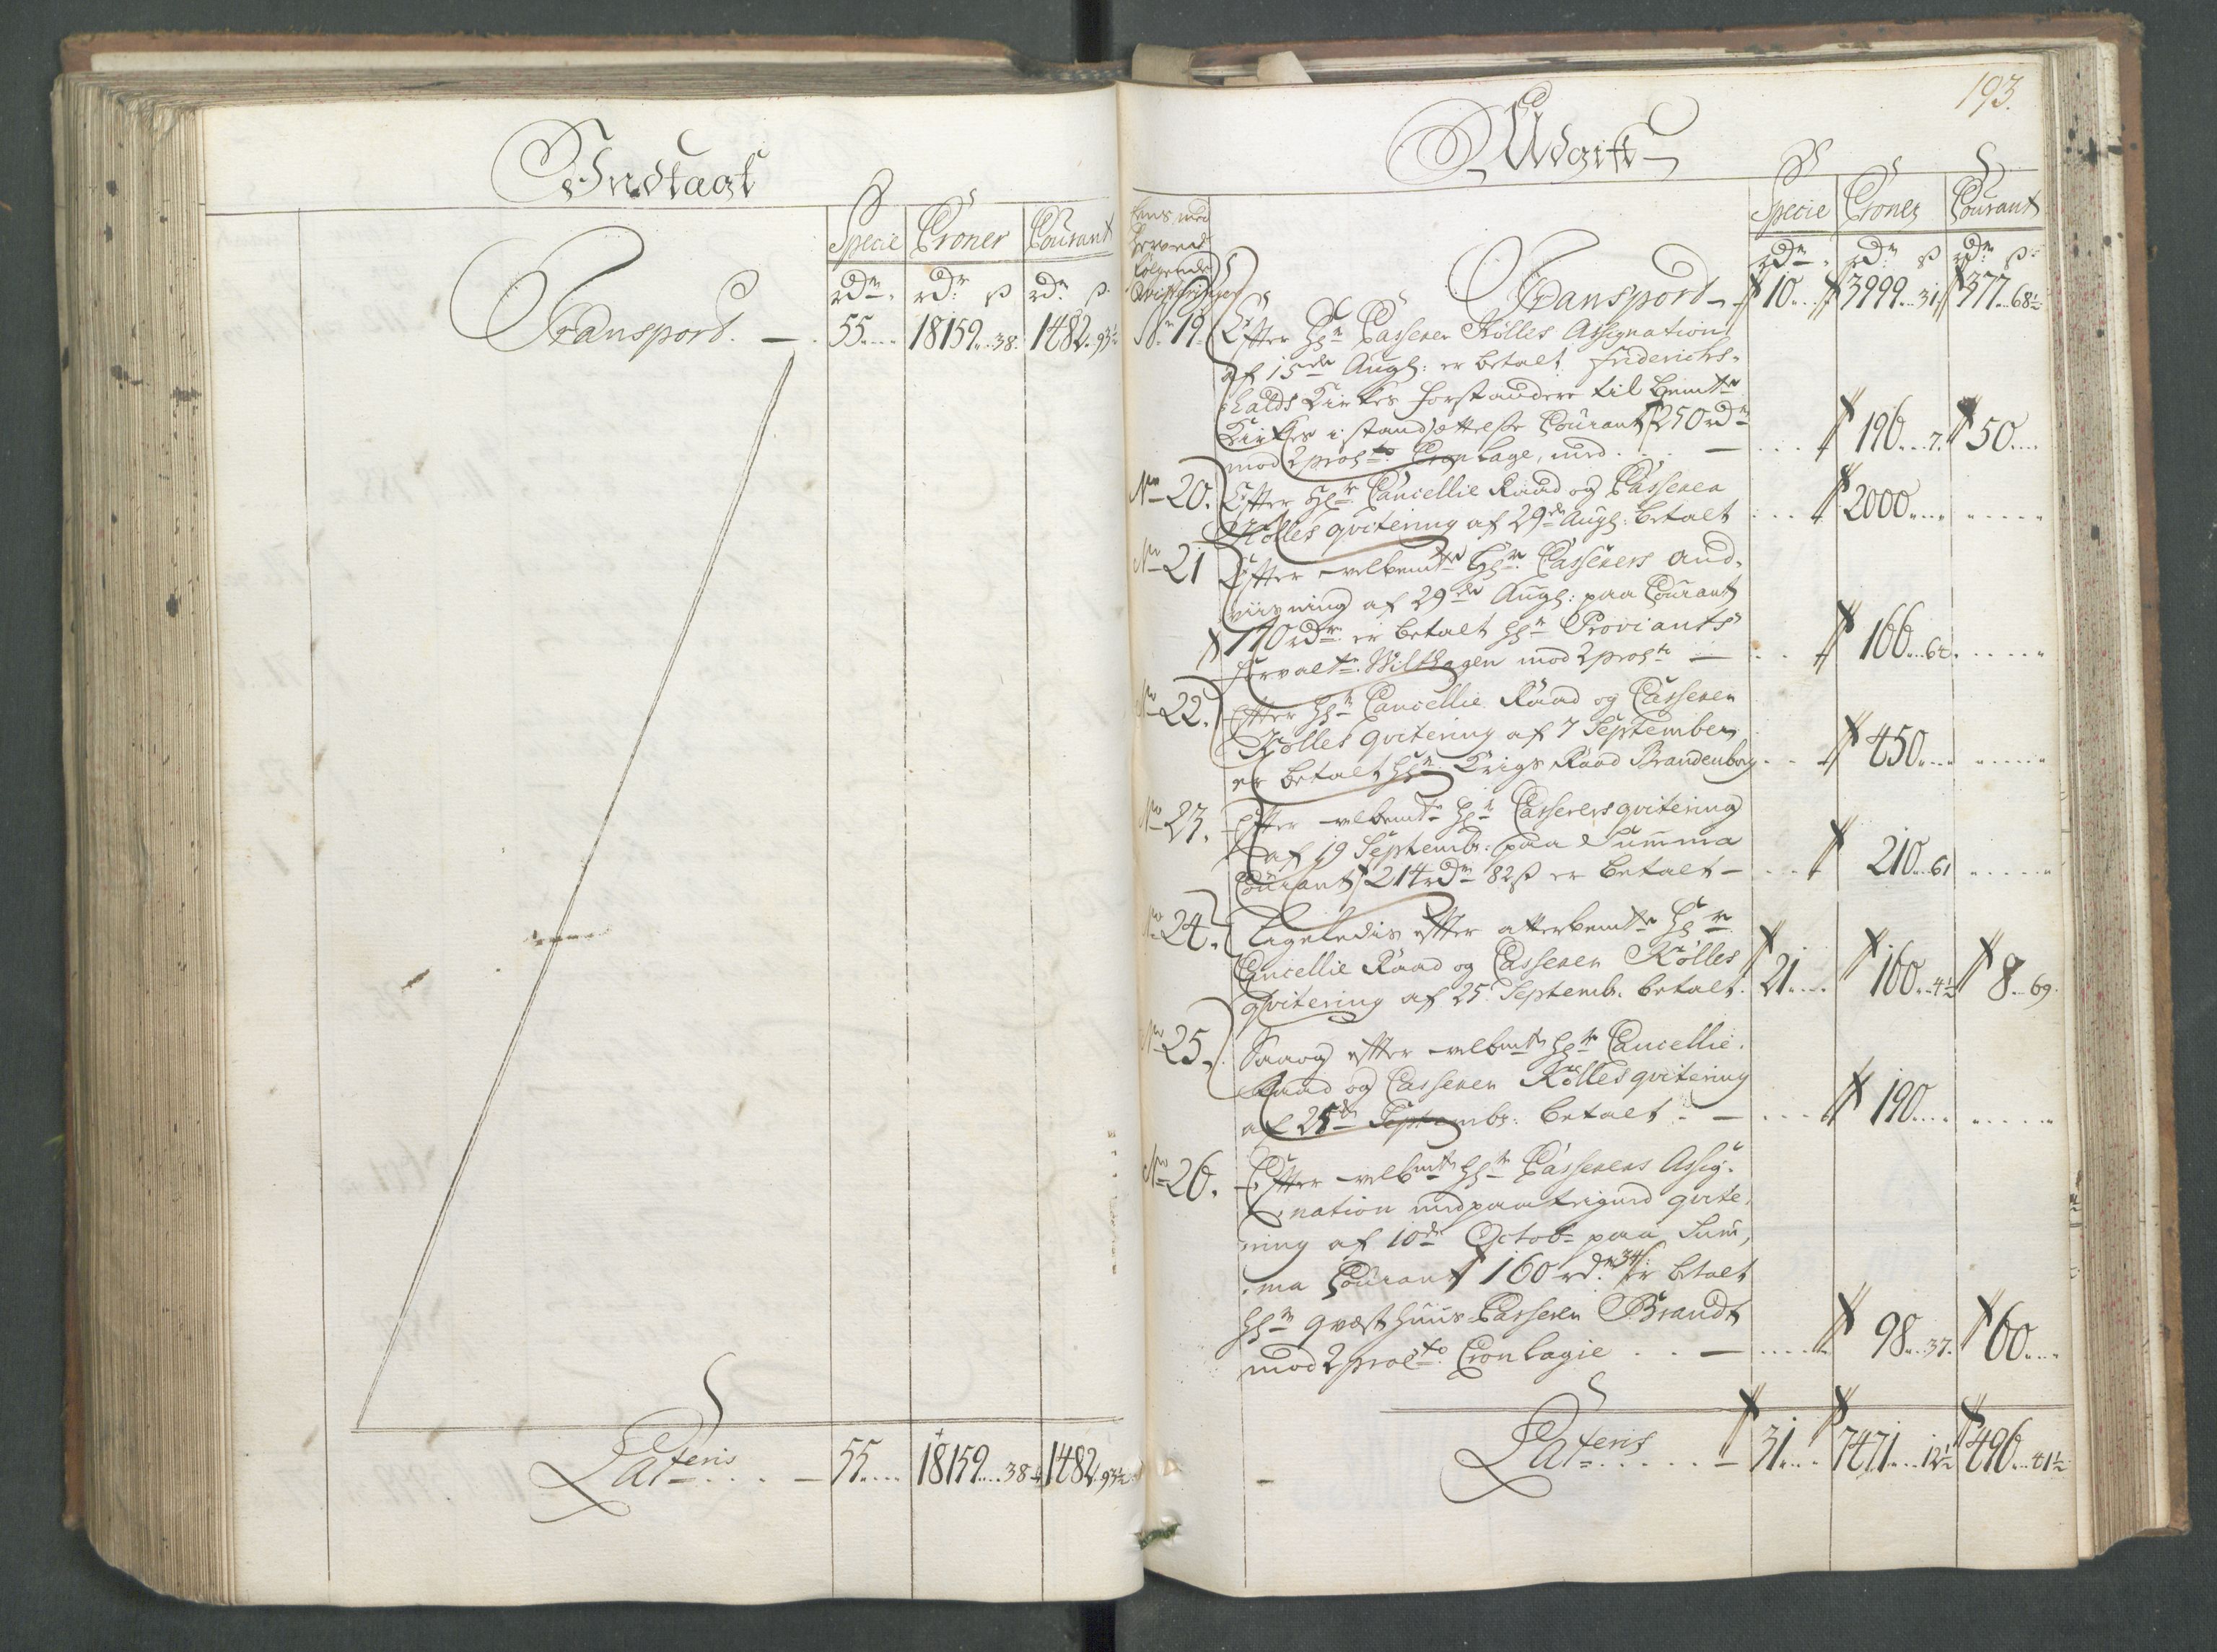 Indtægt
Specie Croner Courant
rdr. rdr. ß rdr. ß.
Transport. — 55.... 18159...38. 1482..93½
Lateris.... — 55.... 18159....38. 1482..93½
193.
Udgift
Specie Croner Courant
rdr. rdr. ß rdr. ß.
Eens med
herved
følgende
Qviteringer
Transport — 10.... 3999...31 377...68½
No. 19. Efter Hr. Casserer Kølles Assignation
af 15de Aug: er betalt Friderichs-
halds Kirkes Forstandere til bemte
Kirkes istandsættelse Courant 250 rdr
mod 2 procto. Cronlage, med.... — 196...7. 50....
No 20. Efter Hr. Cancellie Raad og Casserer
Kølles qvitering af 29de Aug: betalt .... 2000....
No 21 Efter velbemte Hr. Casserers And-
viisning af 29de Aug: paa Courant
170 rdr er betalt Hr. Proviants
Forvaltr. Wilthagen mod 2 procto — 166...64.
No 22. Efter Hr. Cancellie Raad og Casserer
Kølles qvitering af 7 September
er betalt Hr. Krigs Raad Brandenborg... 450....
No 23. Efter velbemte Hr. Casserers qvitering
af 19 Septembr: paa Summa
Courant 214 rdr 82 ß er betalt — ... 210...61
No 24. Ligeledis efter atterbemte Hr.
Cancellie Raad og Casserer Kølles
qvitering af 25. Septemb. betalt. 21.... 160...4½ 8...69.
No 25. Saaog efter velbemte Hr. Cancellie-
Raad og Casserer Kølles qvitering
af 25de Septembr: betalt - — ... 190....
No 26. Efter velbte Hr. Casserers Assig-
nation med paategned qvite-
ring af 10de Octobr paa Sum-
ma Courant 160 rdr. 34 ß er betalt
Hr. Qvæsthuus Casserer Brandt
mod 2 procto. Cronlagie .. — .... 98...37. 60....
Lateris..... — 31.... 7471...12½ 496...41½